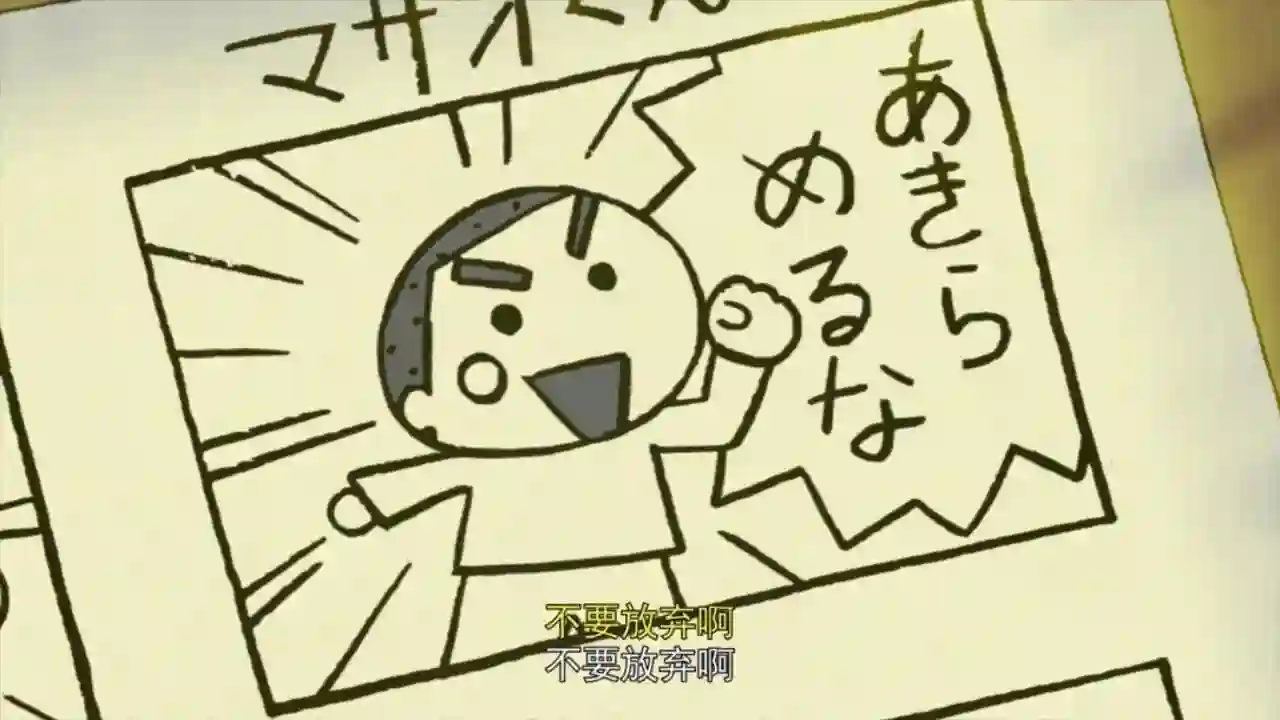 マサオくん
あきら
めるな
不要放弃啊
不要放弃啊